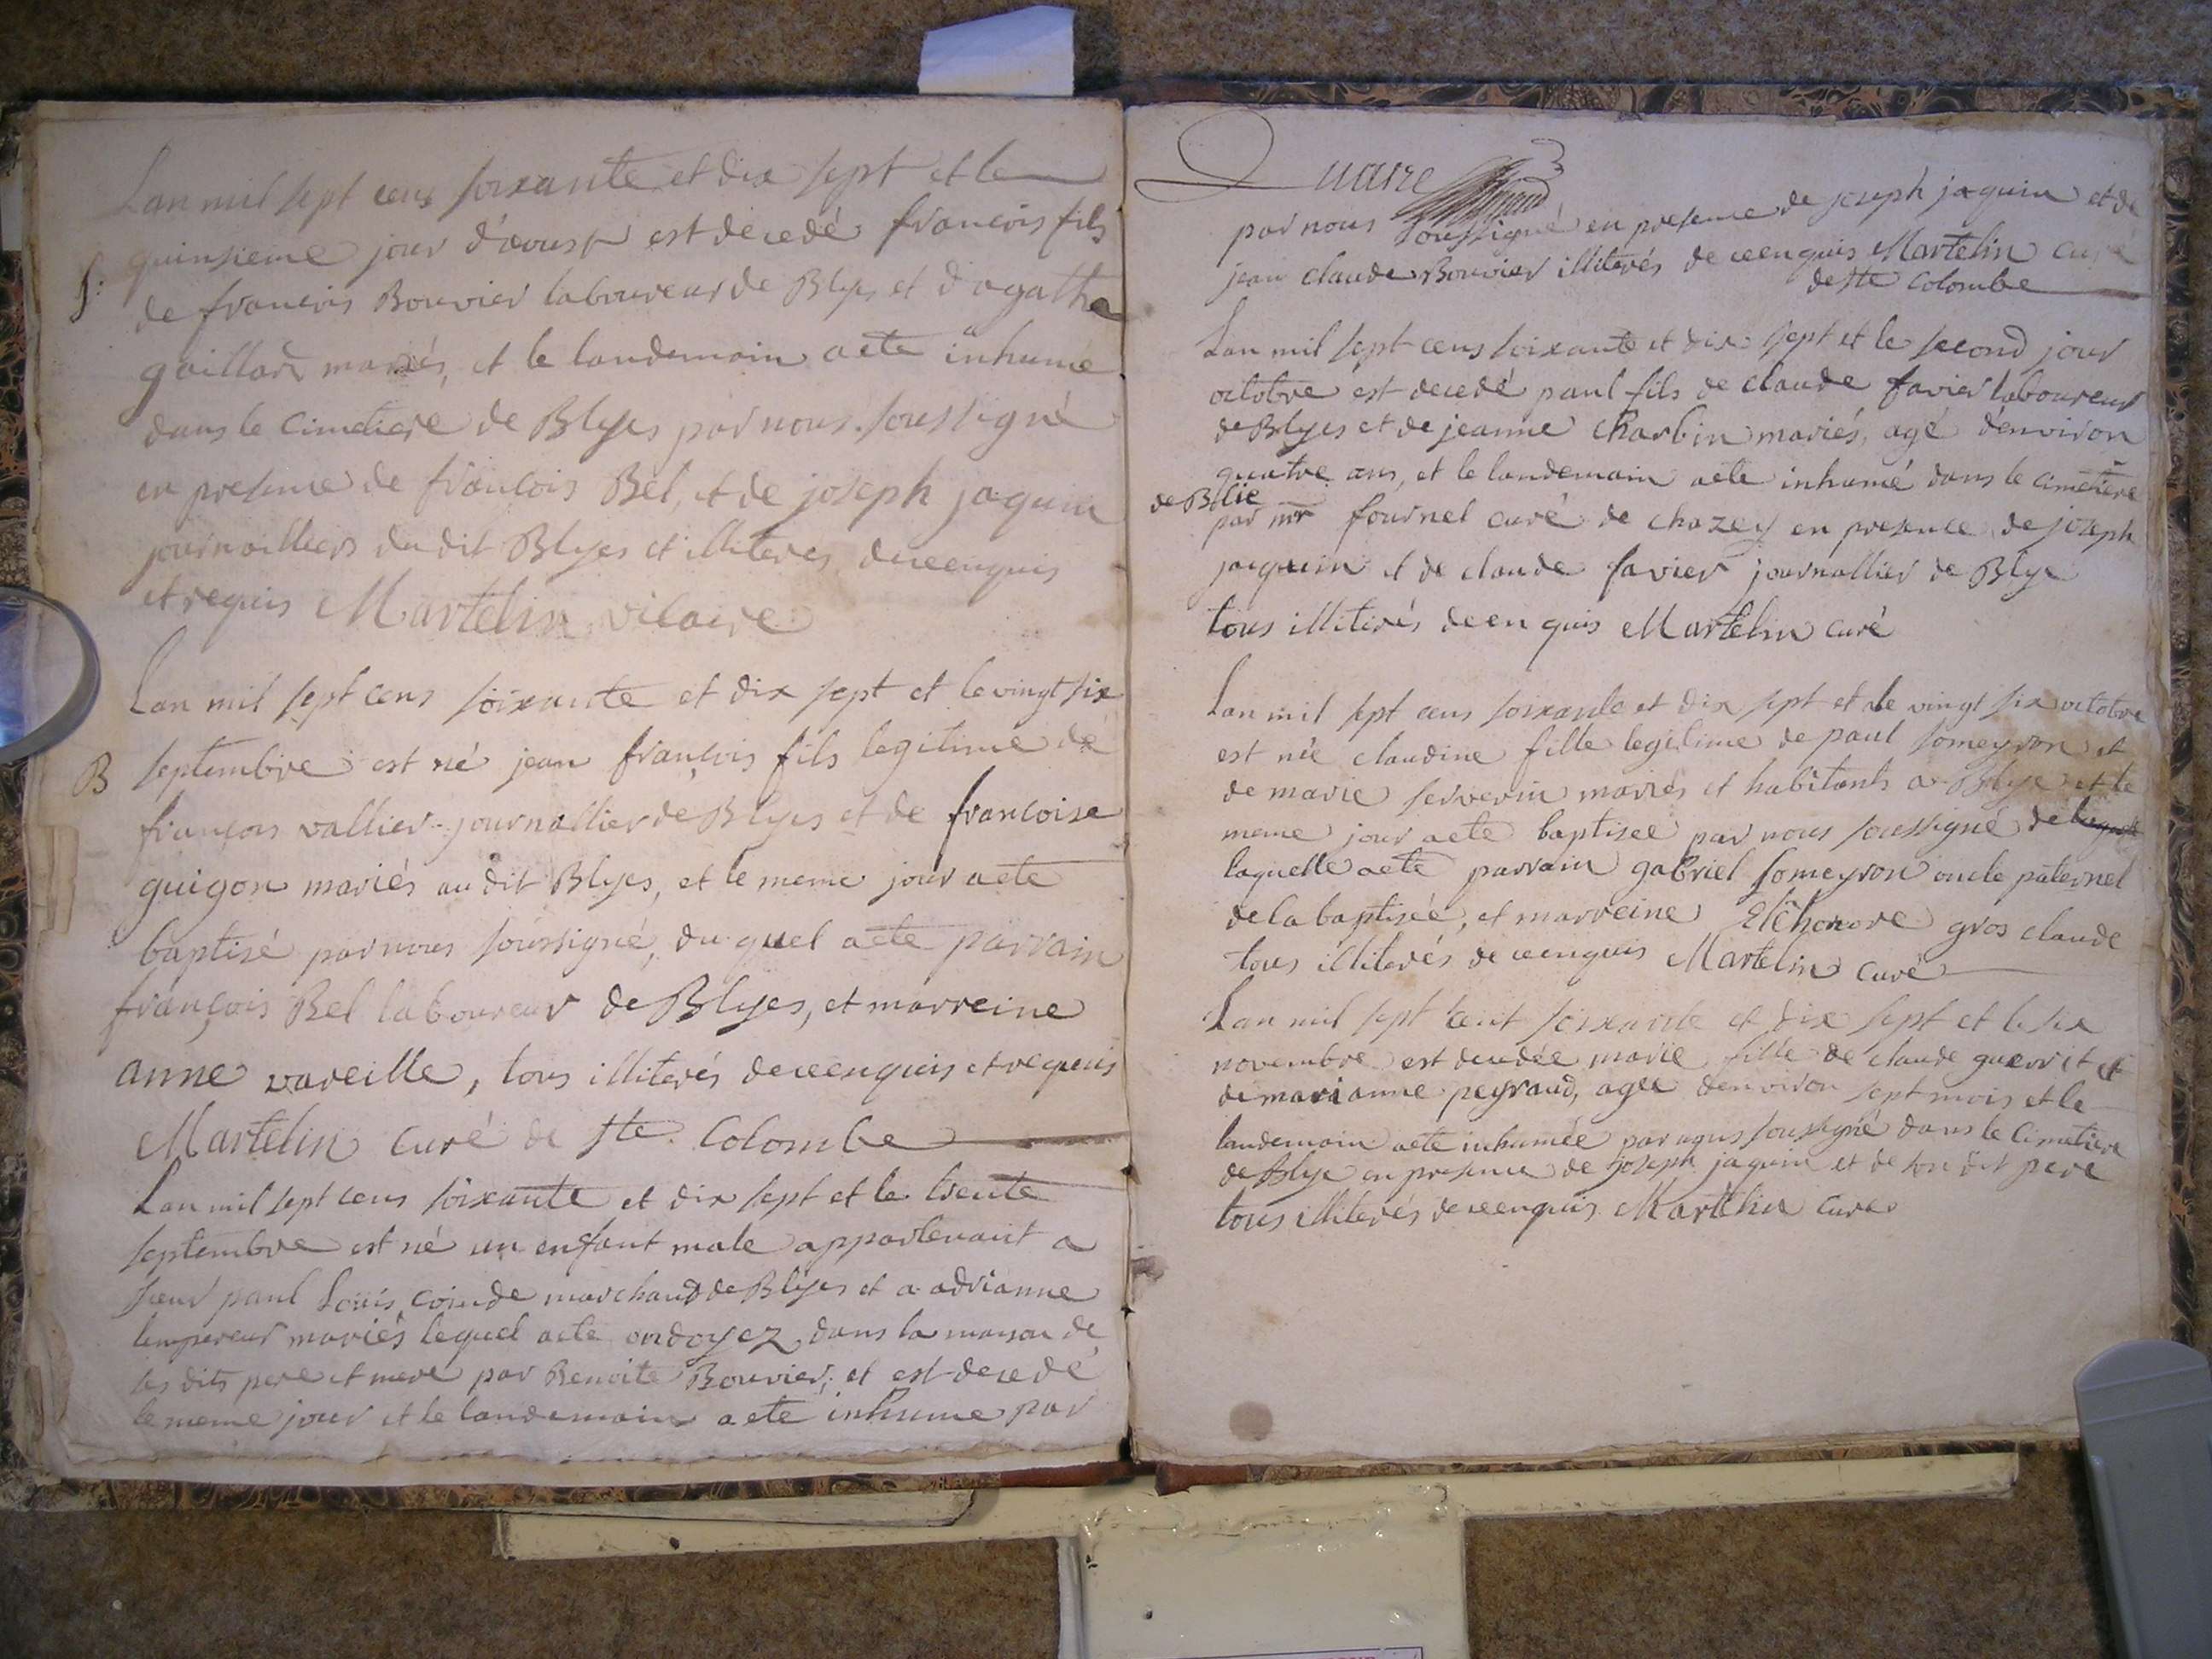 Lan mil sept cens soixante et dix sept et le
quinsieme jour d'aoust est decedé françois fils
S:
de françois Bouvier laboureur de Blyes et d'agathe
gaillard mariés, et le landemain aeté inhumé
dans le cimetiere de Blyes par nous soussigné
en presence de françois Bel, et de joseph jaquin
journailliers du dit Blyes et illiteres de ce enquis
et requis Martelin vicaire
Lan mil sept cens soixante et dix sept et le vingt six
B
septembre est né jean françois fils legitime de
françois vallier journallier de Blyes et de francoise
guigon mariés au dit Blyes, et le meme jour aeté
baptisé par nous soussigné, du quel aeté parrain
françois Bel laboureur de Blyes, et marreine
anne vareille, tous illiterés de ce enquis et requis
Martelin curé de ste Colombe
Lan mil sept cens soixante et dix sept et le trente
septembre est né un enfant male appartenant a
sieur paul Louis coinde marchand de Blyes et a adrianne
lempereur mariés lequel aeté ondoyez dans la maison de
ses dits pere et mere par Benoite Bouvier, et est decedé
le meme jour et le landemain aeté inhume par
Quatre
par nous soussigné en presence de joseph jaquin et de
jean claude Bouvier illiterés de ce enquis Martelin curé
de ste Colombe
Lan mil sept cens soixante et dix sept et le second jour
octobre est decedé paul fils de claude favier laboureur
de Blyes et de jeanne charbin mariés, agé d'environ
quatre ans, et le landemain aeté inhumé dans le cimetiere
de Blie
par mr fournel curé de chazey en presence de joseph
jaquin et de claude favier journallier de Blye
tous illiterés de en quis Martelin curé
Lan mil sept cens soixante et dix sept et le vingt six octobre
est née claudine fille legitime de paul someyron et
de marie serverin mariés et habitants a Blye et le
meme jour aeté baptisee par nous soussigné de laquelle
laquelle aeté parrain gabriel someyron oncle paternel
de la baptisée, et marreine Elehonore gros claude
tous illiterés de ce enquis Martelin curé
Lan mil sept cent soixante et dix sept et le six
novembre est decedée marie fille de claude guerrit et
de marianne peyraud, agee d'environ sept mois et le
landemain aeté inhumée par nous soussigné dans le cimetiere
de Blye en presence de joseph jaquin et de son dit pere
tous illiterés de ce enquis Martelin curé